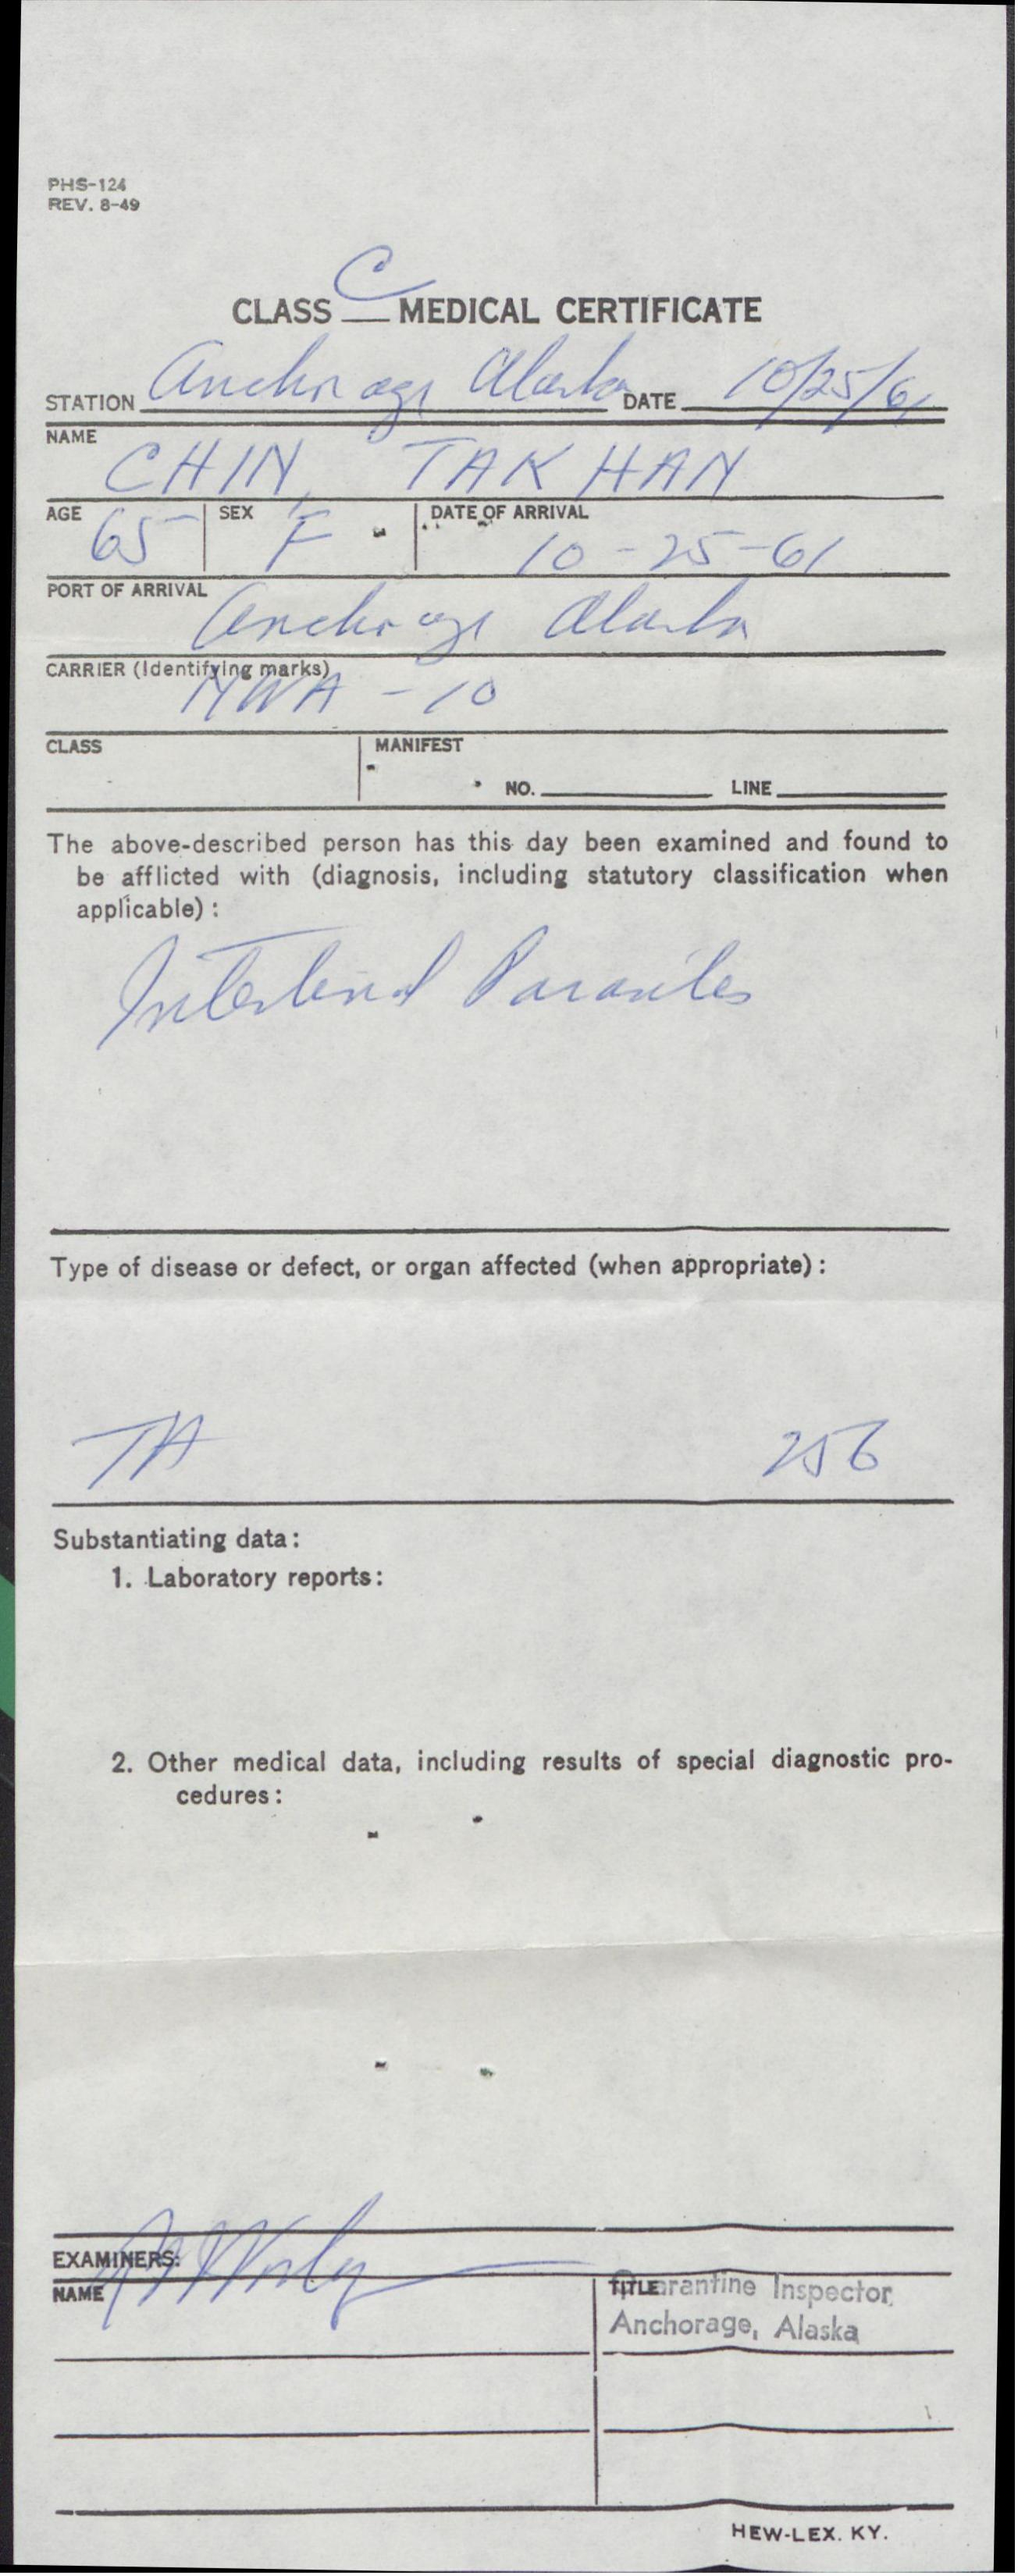 PHS-124
REV. 8-49
CLASS C MEDICAL CERTIFICATE
STATION Anchorage Alaska DATE 10/25/61
NAME
CHIN, TAK HAN
AGE 65 SEX F DATE OF ARRIVAL 10-25-61
PORT OF ARRIVAL Anchorage Alaska
CARRIER (Identifying marks)
NWA - 10
CLASS MANIFEST
NO. LINE
The above-described person has this day been examined and found to
be afflicted with (diagnosis, including statutory classification when
applicable) :
Intestinal Parasites
Type of disease or defect, or organ affected (when appropriate) :
TA 256
Substantiating data :
1. Laboratory reports :
2. Other medical data, including results of special diagnostic pro-
cedures :
EXAMINERS:
NAME TITLE Quarantine Inspector
Anchorage, Alaska
HEW-LEX. KY.